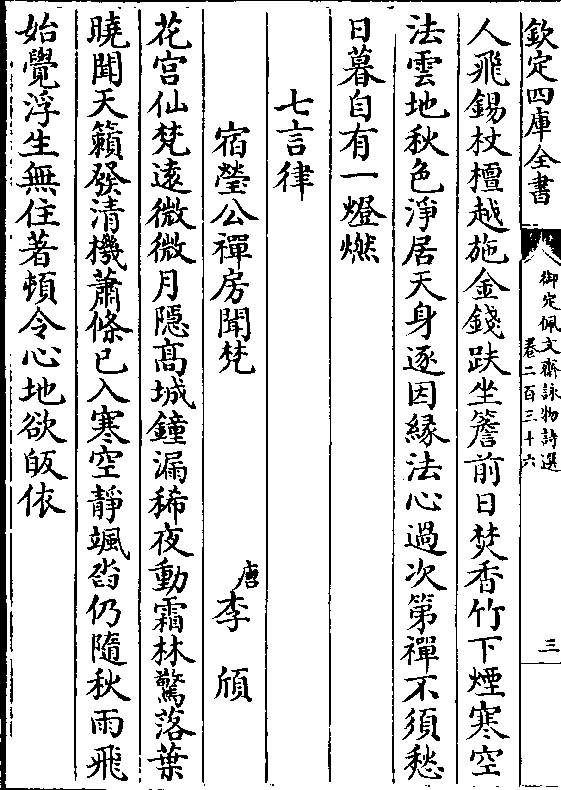 欽定四庫全書
御定佩文齋詠物詩選
卷二百三十六
三
人飛錫杖檀越施金錢趺坐簷前日焚香竹下煙寒空
法雲地秋色淨居天身逐因緣法心過次第禪不須愁
日暮自有一燈燃
七言律
宿瑩公禪房聞梵
唐李頎
花宮仙梵遠微微月隱髙城鐘漏稀夜動霜林驚落葉
曉聞天籟發清機蕭條已入寒空靜颯沓仍隨秋雨飛
始覺浮生無住著頓令心地欲皈依